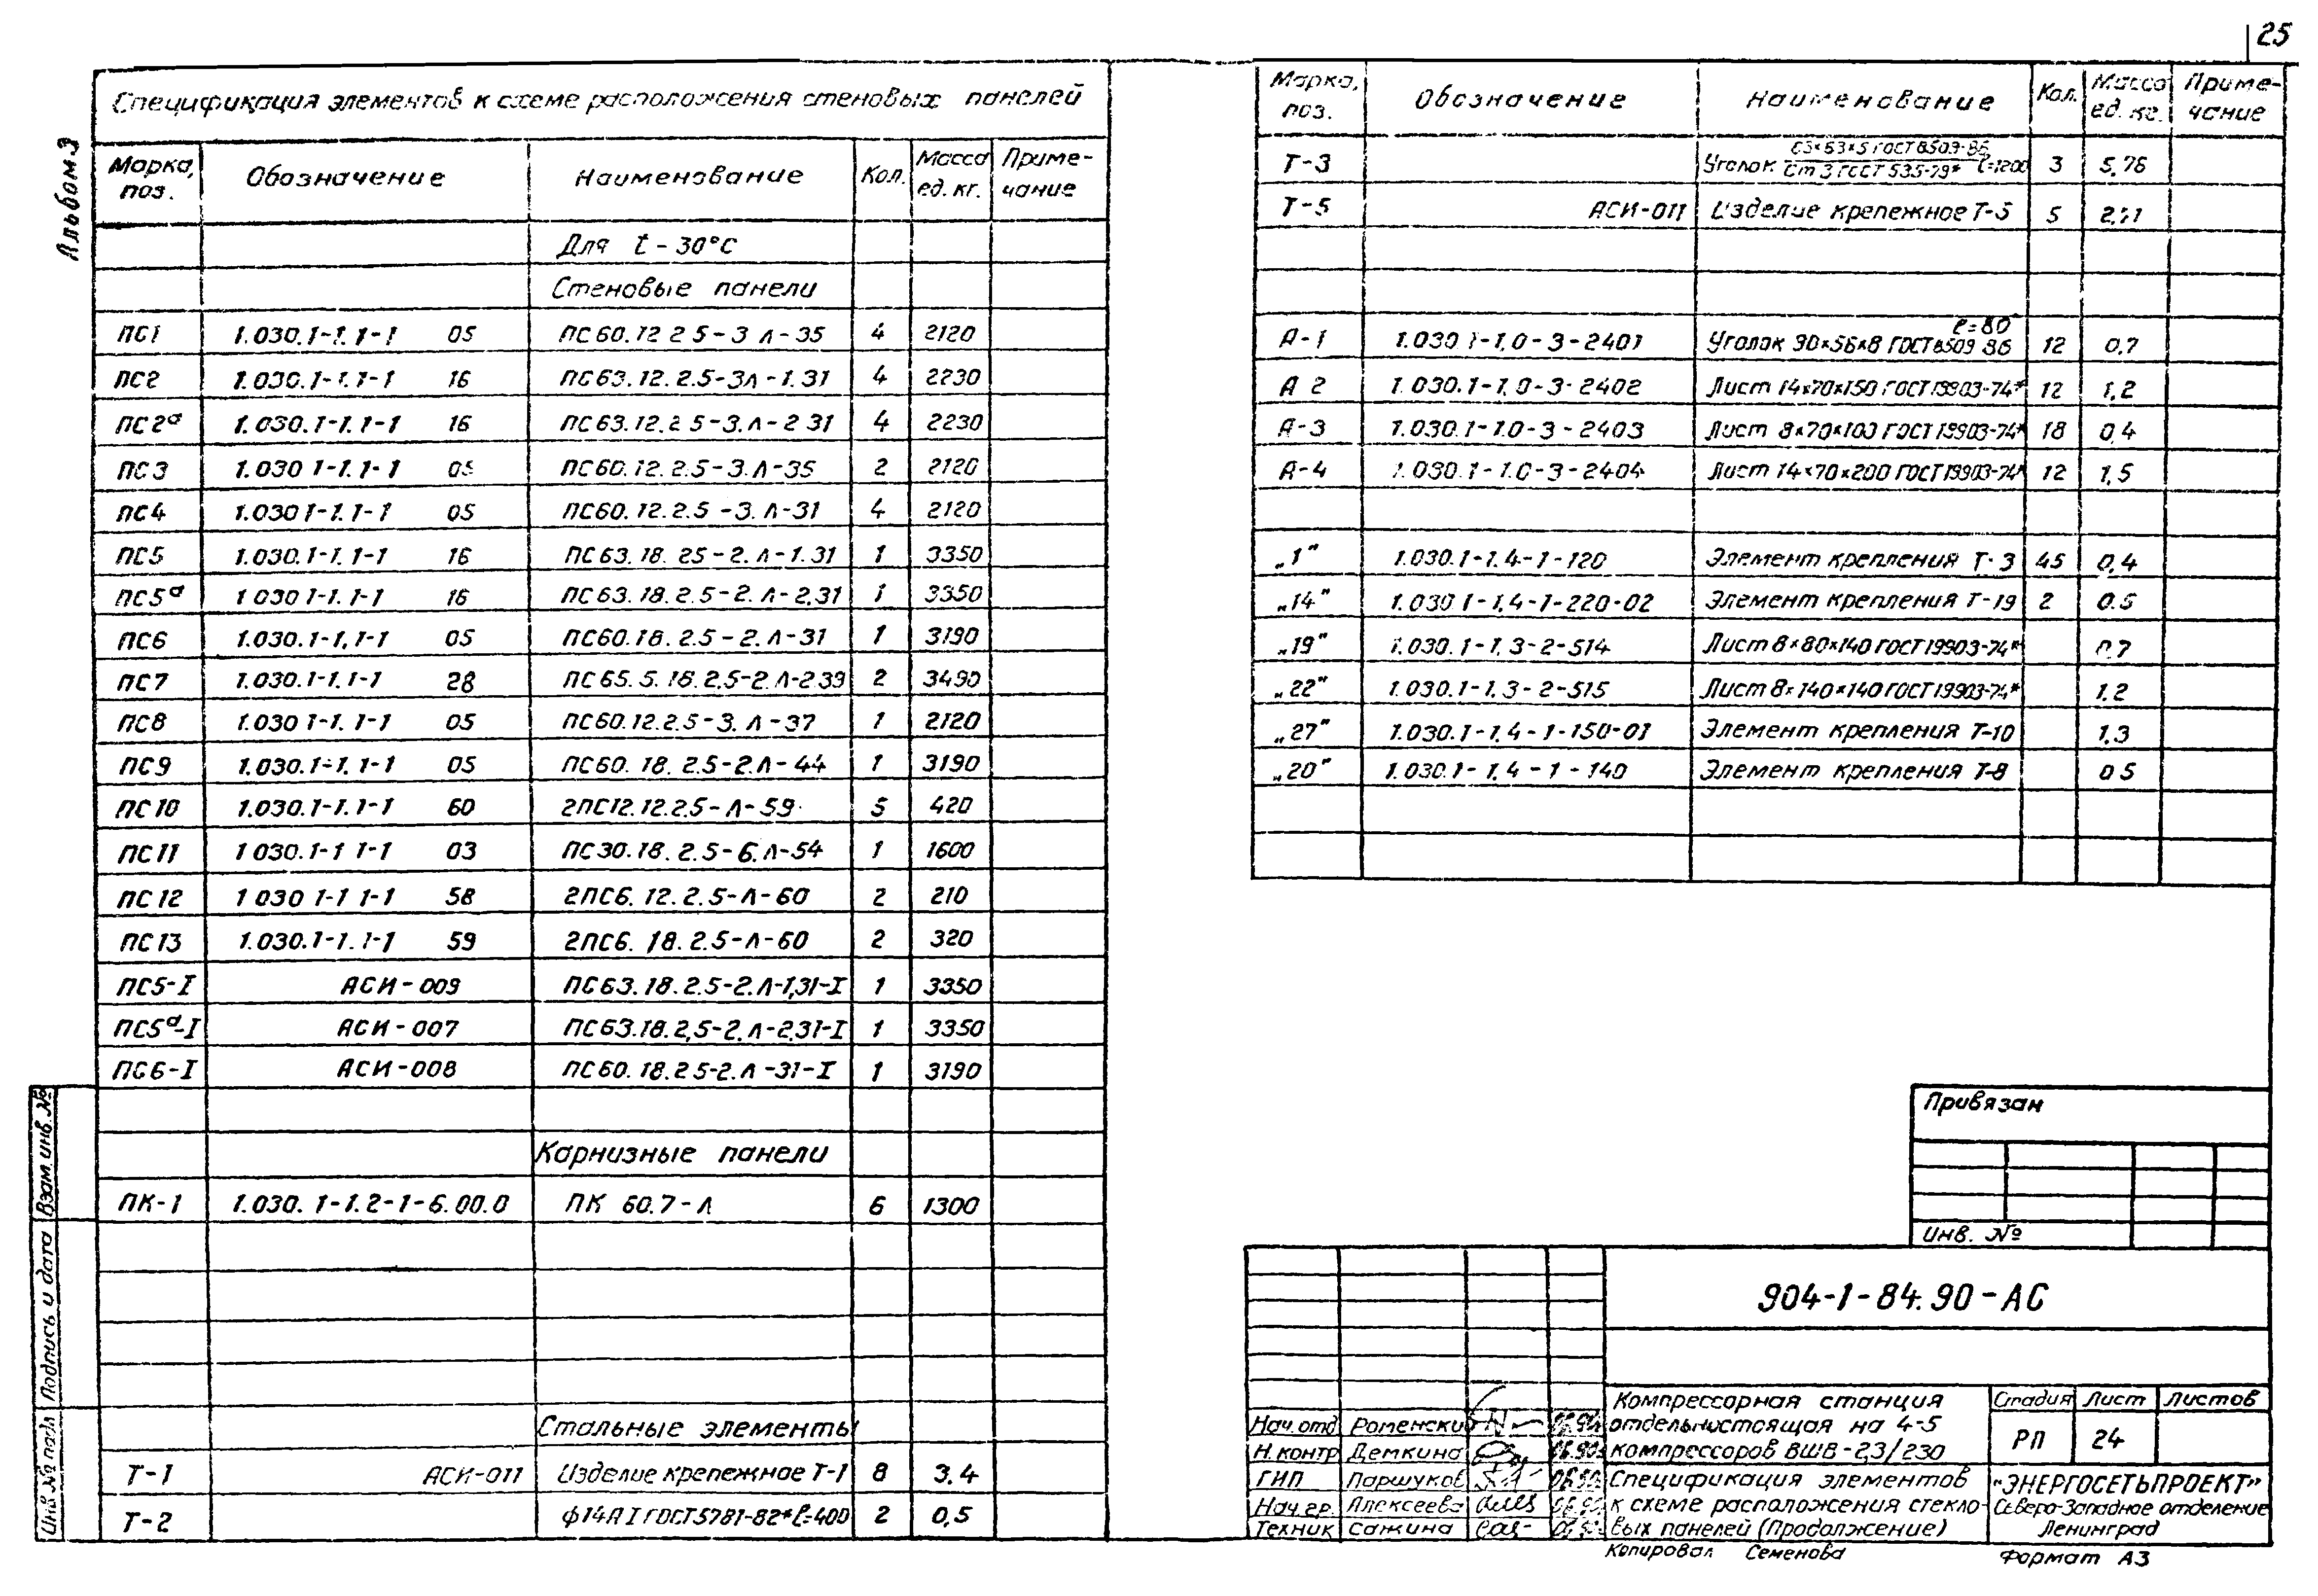 25
Альбом 3
Спецификация элементов к схеме расположения стеновых панелей
Марка, поз. Обозначение Наименование Кол. Масса ед. кг. Приме-чание
Для t - 30°C
Стеновые панели
ПС1 1.030.1-1.1-1 05 ПС60.12 2 5-3 Л-35 4 2120
ПС2 1.030.1-1.1-1 16 ПС63.12.2.5-3Л-1.31 4 2230
ПС2а 1.030.1-1.1-1 16 ПС63.12.2 5-3.Л-2 31 4 2230
ПС3 1.030 1-1.1-1 05 ПС60.12.2.5-3.Л-35 2 2120
ПС4 1.030 1-1.1-1 05 ПС60.12.2.5-3.Л-31 4 2120
ПС5 1.030.1-1.1-1 16 ПС63.18.25-2.Л-1.31 1 3350
ПС5а 1 030 1-1.1-1 16 ПС63.18.2.5-2.Л-2.31 1 3350
ПС6 1.030.1-1.1-1 05 ПС60.18.2.5-2.Л-31 1 3190
ПС7 1.030.1-1.1-1 28 ПС65.5.18.2.5-2.Л-239 2 3490
ПС8 1.030 1-1.1-1 05 ПС60.12.2.5-3.Л-37 1 2120
ПС9 1.030.1-1.1-1 05 ПС60.18.2.5-2.Л-44 1 3190
ПС10 1.030.1-1.1-1 60 2ПС12.12.2.5-Л-59 5 420
ПС11 1 030.1-1 1-1 03 ПС30.18.2.5-6.Л-54 1 1600
ПС12 1 030 1-1 1-1 58 2ПС6.12.2.5-Л-60 2 210
ПС13 1.030.1-1.1-1 59 2ПС6.18.2.5-Л-60 2 320
ПС5-I АСИ-009 ПС63.18.2.5-2.Л-1,31-I 1 3350
ПС5а-I АСИ-007 ПС63.18.2,5-2.Л-2.31-I 1 3350
ПС6-I АСИ-008 ПС60.18.2 5-2.Л-31-I 1 3190
Карнизные панели
ПК-1 1.030.1-1.2-1-6.00.0 ПК 60.7-Л 6 1300
Стальные элементы
Т-1 АСИ-011 Изделие крепежное Т-1 8 3.4
Т-2 ф14АI ГОСТ5781-82* ℓ=400 2 0,5
Марка, поз. Обозначение Наименование Кол. Масса ед. кг. Приме-чание
Т-3 Уголок 63×63×5 ГОСТ 8509-86 / Ст 3 ГОСТ 535-79* ℓ=1200 3 5,76
Т-5 АСИ-011 Изделие крепежное Т-5 5
ℓ=80
А-1 1.030 1-1.0-3-2401 Уголок 90×56×8 ГОСТ 8509 86 12 0,7
А 2 1.030.1-1.0-3-2402 Лист 14×70×150 ГОСТ 19903-74* 12 1,2
А-3 1.030.1-1.0-3-2403 Лист 8×70×100 ГОСТ 19903-74* 18 0,4
А-4 1.030.1-1.0-3-2404 Лист 14×70×200 ГОСТ 19903-74* 12 1,5
„1" 1.030.1-1.4-1-120 Элемент крепления Т-3 45 0,4
„14" 1.030 1-1.4-1-220-02 Элемент крепления Т-19 2 0.5
„19" 1.030.1-1.3-2-514 Лист 8×80×140 ГОСТ 19903-74* 0.7
„22" 1.030.1-1.3-2-515 Лист 8×140×140 ГОСТ 19903-74* 1.2
„27" 1.030.1-1.4-1-150-01 Элемент крепления Т-10 1,3
„20" 1.030.1-1.4-1-140 Элемент крепления Т-8 0 5
Привязан
Инв. №
904-1-84.90-АС
Компрессорная станция
отдельностоящая на 4-5
компрессоров ВШВ-2,3/230
Стадия Лист Листов
РП 24
Нач.отд Роменский 06.90
Н.контр Демкина 06.90
ГИП Паршуков 06.90
Нач.гр. Алексеева 06.90
Техник Сажина 06.90
Спецификация элементов
к схеме расположения стекло-
вых панелей (Продолжение)
"ЭНЕРГОСЕТЬПРОЕКТ"
Северо-Западное отделение
Ленинград
Копировал Семенова
Формат А3
Взам. инв. №
Подпись и дата
Инв № подл